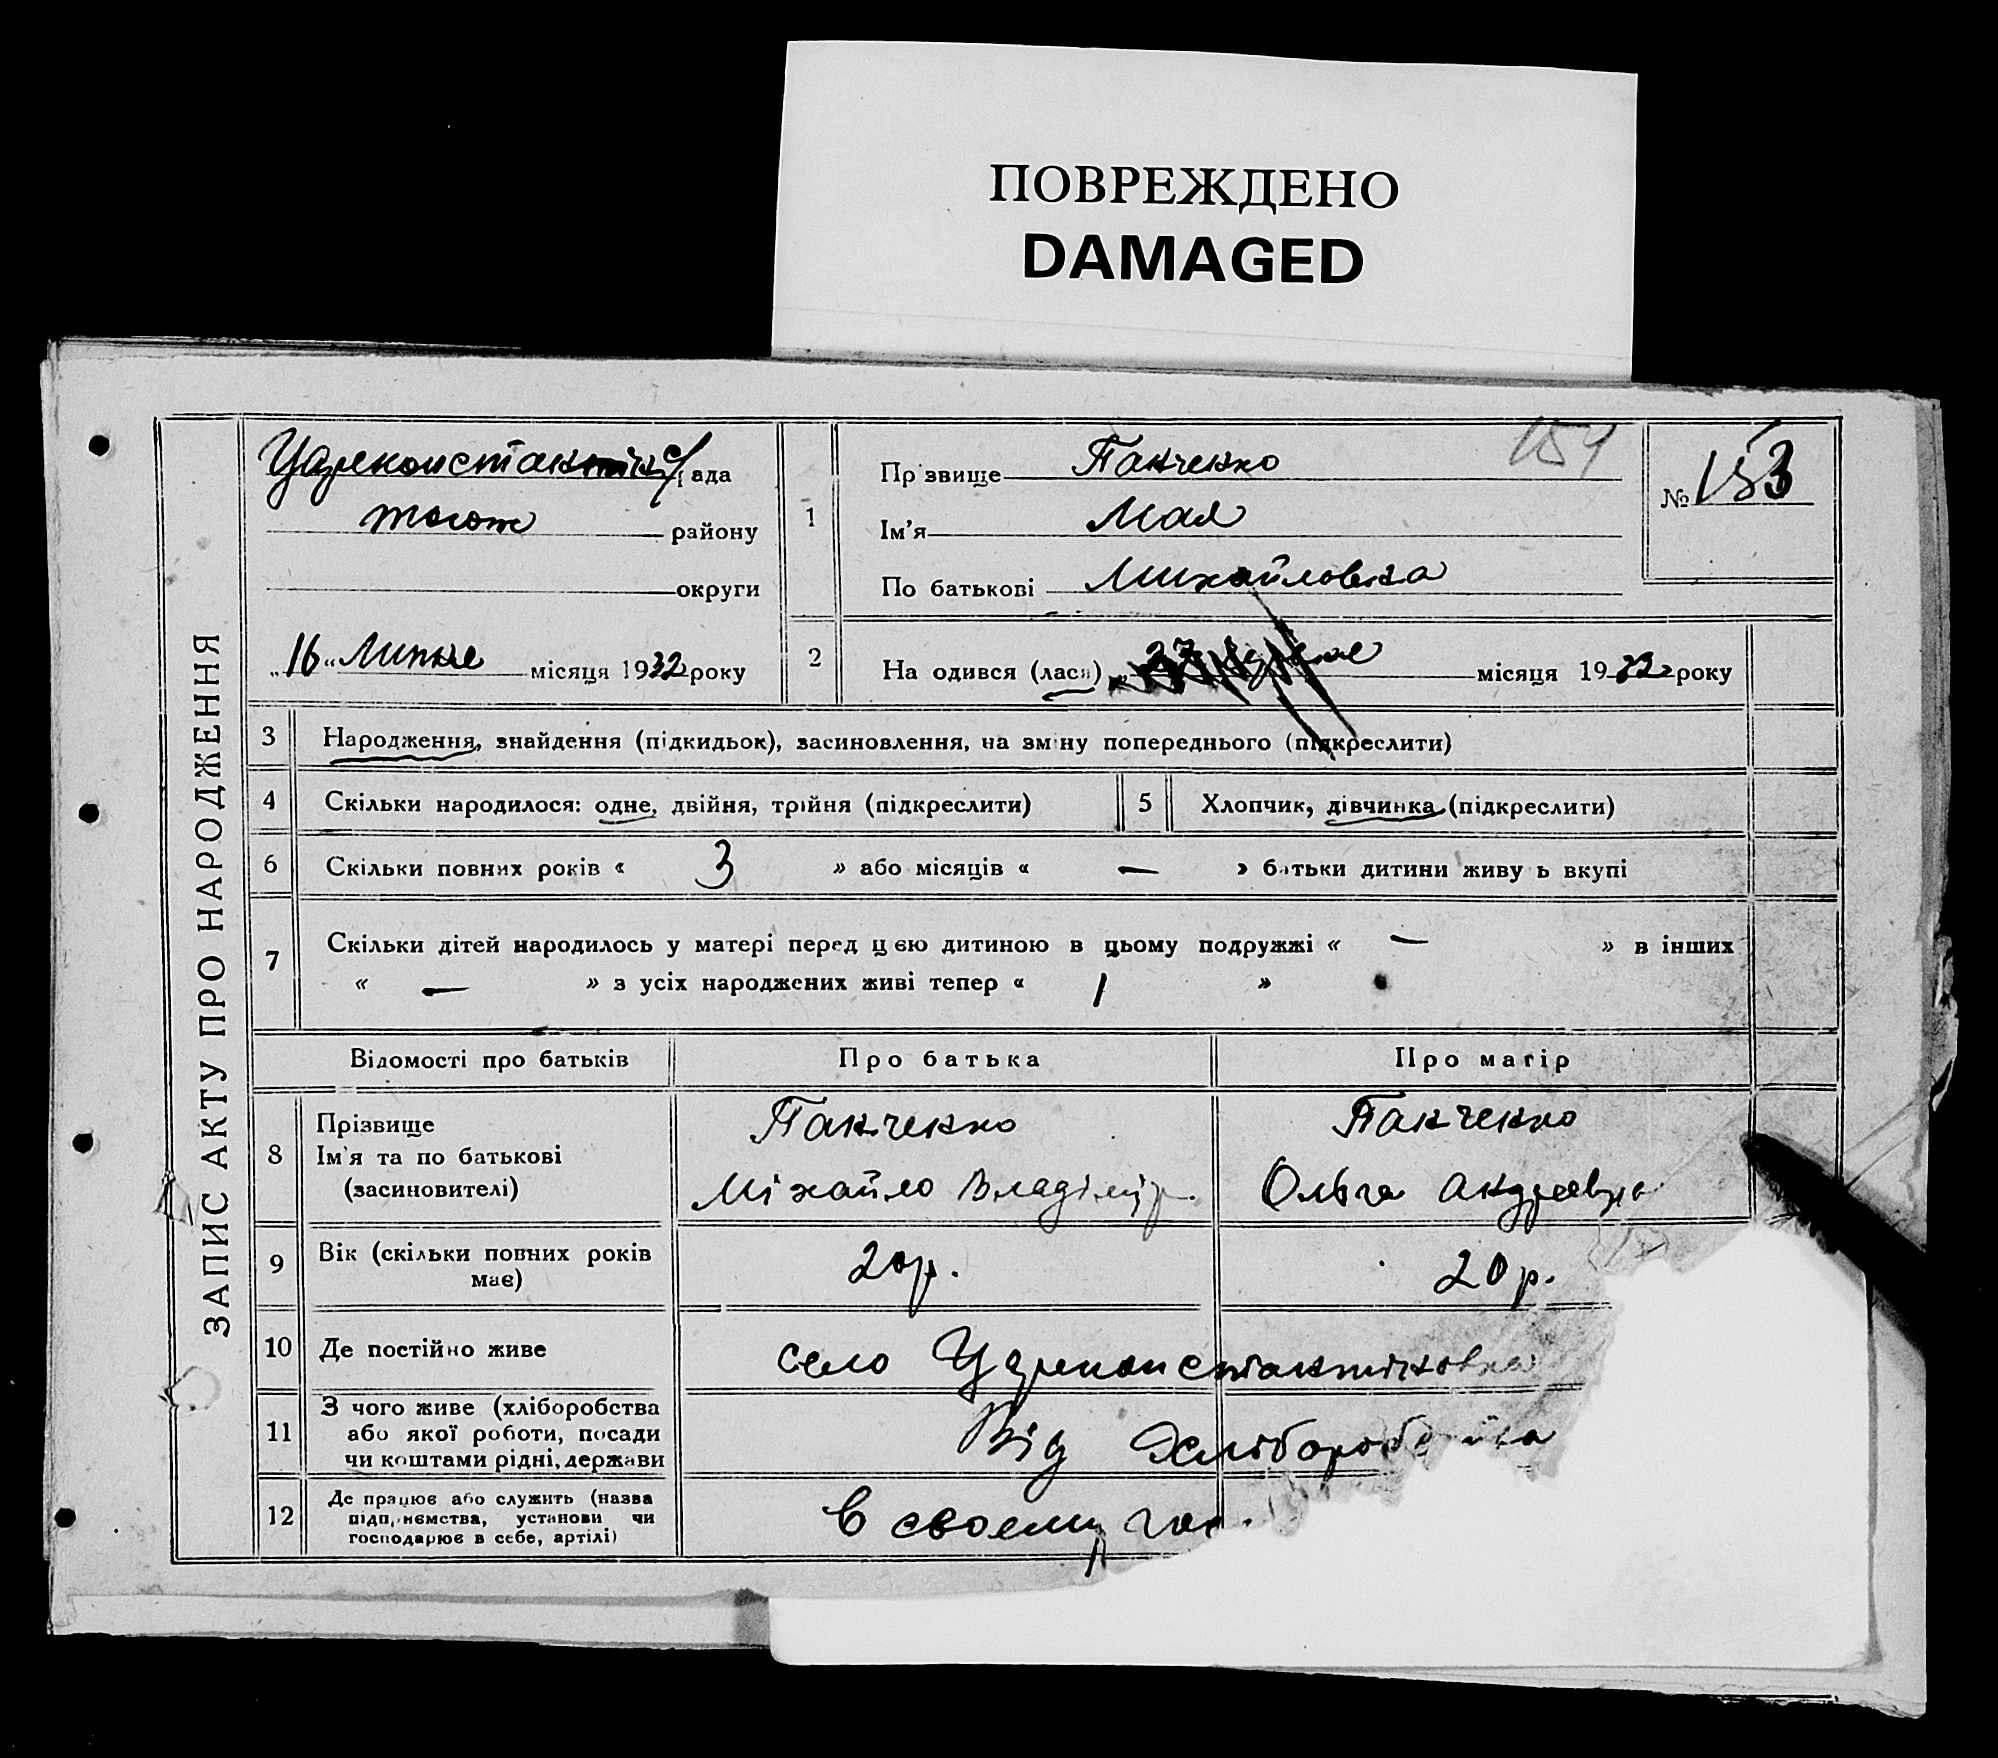 ПОВРЕЖДЕНО
DAMAGED
ЗАПИС АКТУ ПРО НАРОДЖЕННЯ
с/рада
району
округи
„16“ Липня місяця 1932 року
1
Прізвище Панченко
Ім'я Мая
По батькові Михайловна
154
№ 153
2 На одився (лася) „27 місяця 1932 року
3 Народження, знайдення (підкидьок), засиновлення, на зміну попереднього (підкреслити)
4 Скільки народилося: одне, двійня, трійня (підкреслити)
5 Хлопчик, дівчинка (підкреслити)
6 Скільки повних років « 3 » або місяців « — » батьки дитини живуть вкупі
7 Скільки дітей народилось у матері перед цією дитиною в цьому подружжі « — » в інших
« — » з усіх народжених живі тепер « 1 »
Відомості про батьків Про батька Про матір
8 Прізвище Панченко Панченко
Ім'я та по батькові Міхайло Владімір. Ольга Андреевна
(засиновителі)
9 Вік (скільки повних років має) 20 р. 20 р.
10 Де постійно живе село Цареконстантиновка
11 З чого живе (хліборобства
або якої роботи, посади
чи коштами рідні, держави Від хліборобства
12 Де працює або служить (назва
підприємства, установи чи
господарює в себе, артілі) в своему гос.